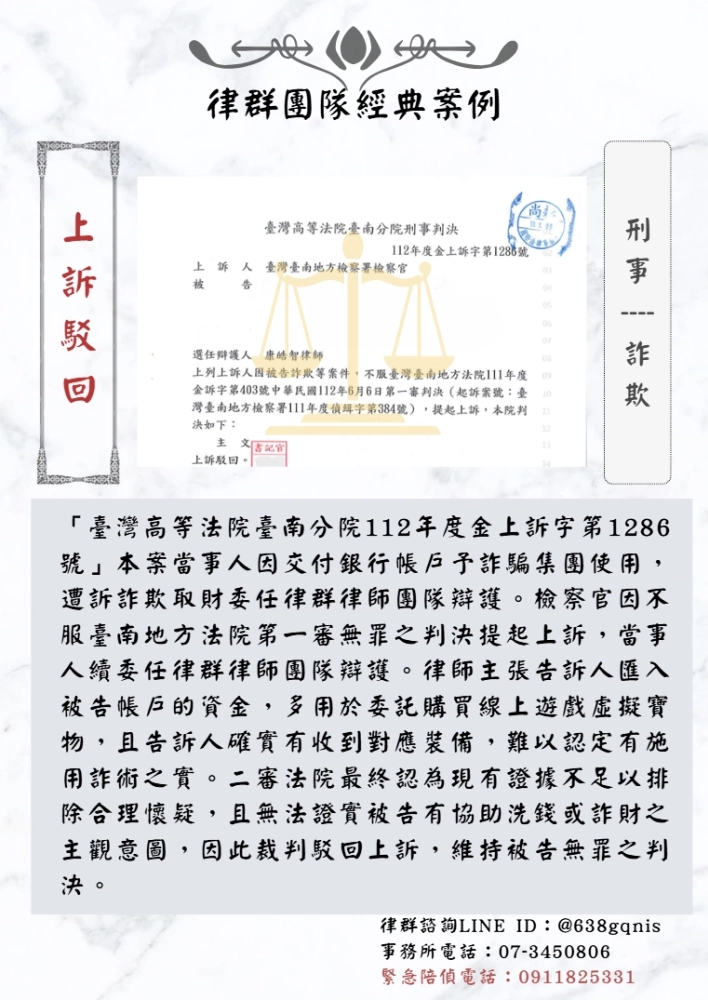 律群團隊經典案例
上訴駁回
刑事----詐欺
臺灣高等法院臺南分院刑事判決
112年度金上訴字第1286號
上訴人 臺灣臺南地方檢察署檢察官
被告
選任辯護人 康皓智律師
上列上訴人因被告詐欺等案件，不服臺灣臺南地方法院111年度
金訴字第403號中華民國112年6月6日第一審判決（起訴案號：臺
灣臺南地方檢察署111年度偵緝字第384號），提起上訴，本院判
決如下：
主文
書記官
上訴駁回。
「臺灣高等法院臺南分院112年度金上訴字第1286
號」本案當事人因交付銀行帳戶予詐騙集團使用，
遭訴詐欺取財委任律群律師團隊辯護。檢察官因不
服臺南地方法院第一審無罪之判決提起上訴，當事
人續委任律群律師團隊辯護。律師主張告訴人匯入
被告帳戶的資金，多用於委託購買線上遊戲虛擬寶
物，且告訴人確實有收到對應裝備，難以認定有施
用詐術之實。二審法院最終認為現有證據不足以排
除合理懷疑，且無法證實被告有協助洗錢或詐財之
主觀意圖，因此裁判駁回上訴，維持被告無罪之判
決。
律群諮詢LINE ID：@638gqnis
事務所電話：07-3450806
緊急陪偵電話：0911825331